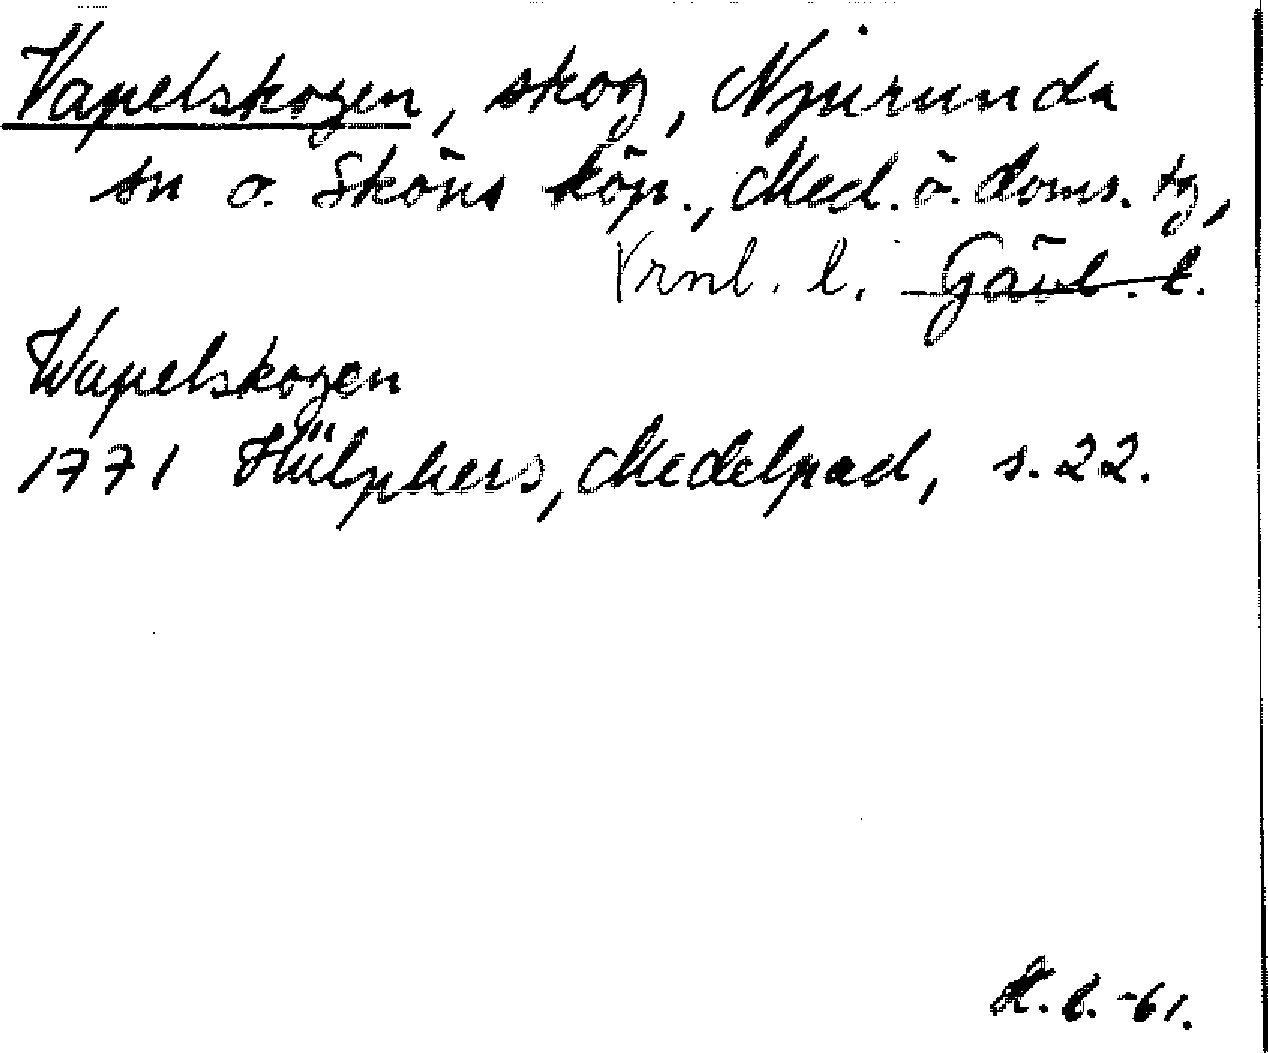 Vapelskogen, skog, Njurunda
sn o. Sköns köp., Med. ö. doms. tg,
Vrnl. l. Gävl. l.
Wapelskogen
1771 Hülphers, Medelpad, s. 22.
K. l. -61.